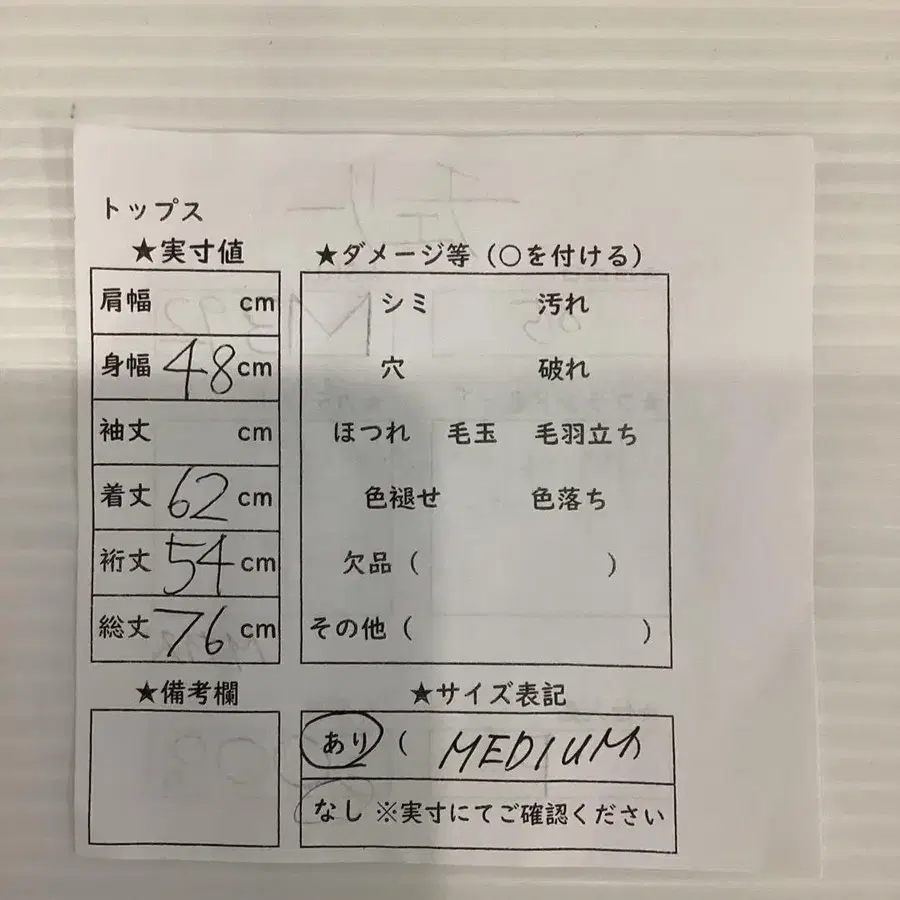 トップス
★実寸値
肩幅 cm
身幅 48 cm
袖丈 cm
着丈 62 cm
裄丈 54 cm
総丈 76 cm
★ダメージ等（○を付ける）
シミ 汚れ
穴 破れ
ほつれ 毛玉 毛羽立ち
色褪せ 色落ち
欠品（ ）
その他（ ）
★備考欄
★サイズ表記
あり（ MEDIUM
なし ※実寸にてご確認ください